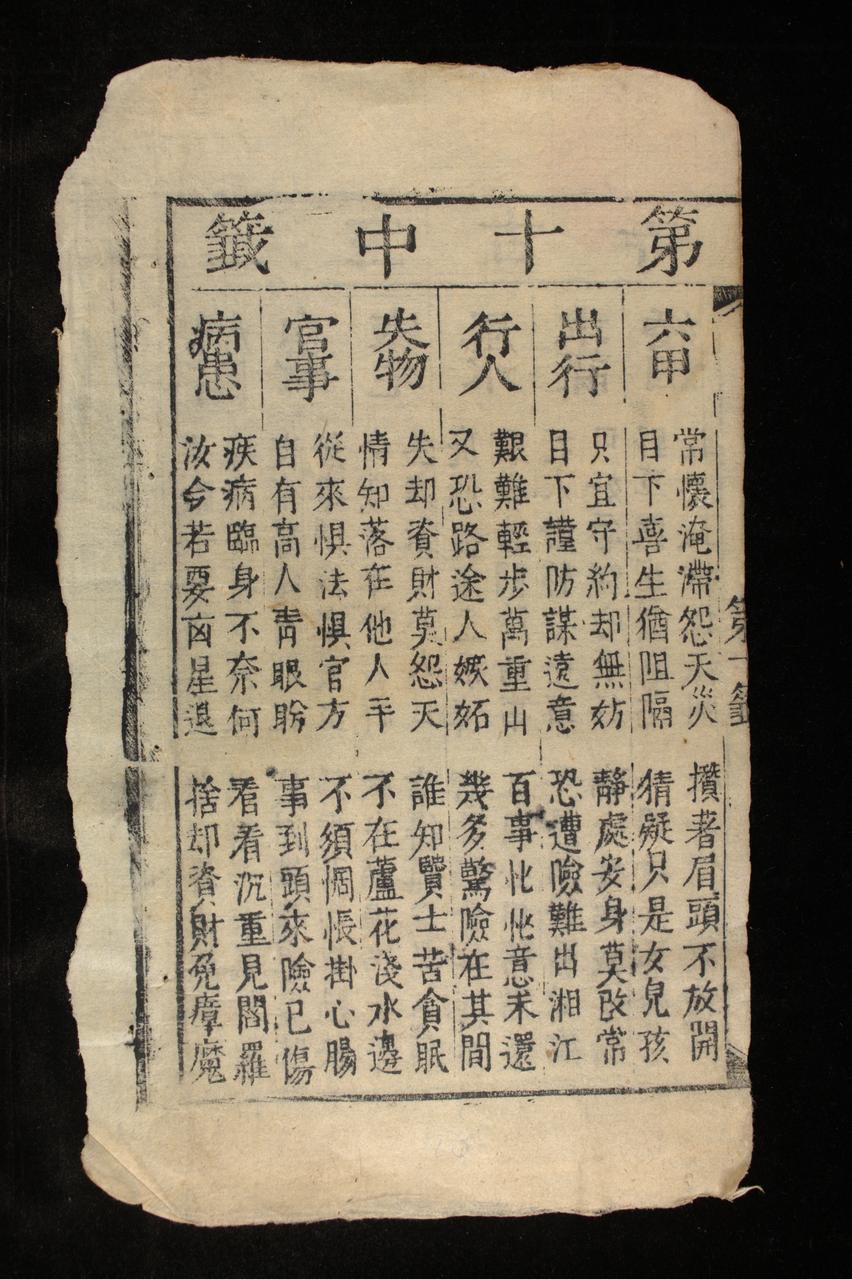 第十中籤
六甲
常懷淹滯怨天災 攢著眉頭不放開
目下喜生猶阻隔 猜疑只是女兒孩
出行
只宜守約却無妨 靜處安身莫改常
目下謹防謀遠意 恐遭險難出湘江
行人
艱難輕步萬重山 百事忙忙意未還
又恐路途人嫉妬 幾多驚險在其間
失物
失却資財莫怨天 誰知賢士苦貪眠
情知落在他人手 不在蘆花淺水邊
官事
從來惧法惧官方 不須惆悵掛心腸
自有高人青眼盼 事到頭來險已傷
病患
疾病臨身不奈何 看看沉重見閻羅
汝今若要凶星退 捨却資財免瘴魔
第 籤